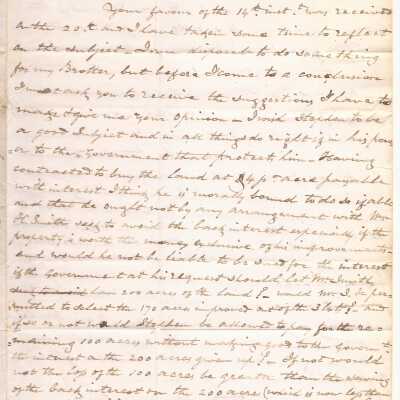 Your favour of the 14th inst. was received
on the 20th and I have taken some time to reflect
on the subject - I was disposed to do something
for my Brother, but before I come to a conclusion
I must ask you to receive the suggestions I have to
make & give me your opinion - I wish Stephen to be
a good Subject and in all things do right if in his power
or to the Government that protect him - Having
contracted to buy the land at $4 pr acre payable
with interest I think he is morally bound to do so if able
and that he ought not by any arrangement with Wm
H Smith Esq to avoid the back interest especially if the
property is worth the money exclusive of his improvements -
and would he not be liable to be sued for the interest
if the Government at his request should let Mr Smith
have 200 acres of the land? - would Mr S. be per=
mitted to select the 170 acres improved as of the 3 lots? and
if so or not would Stephen be allowed to pay for the re=
maining 100 acres without making good to the Government
the interest on the 200 acres given up? - If not would
not the loss of the 100 acres be greater than the saving
of the back interest on the 200 acres (which is now less than